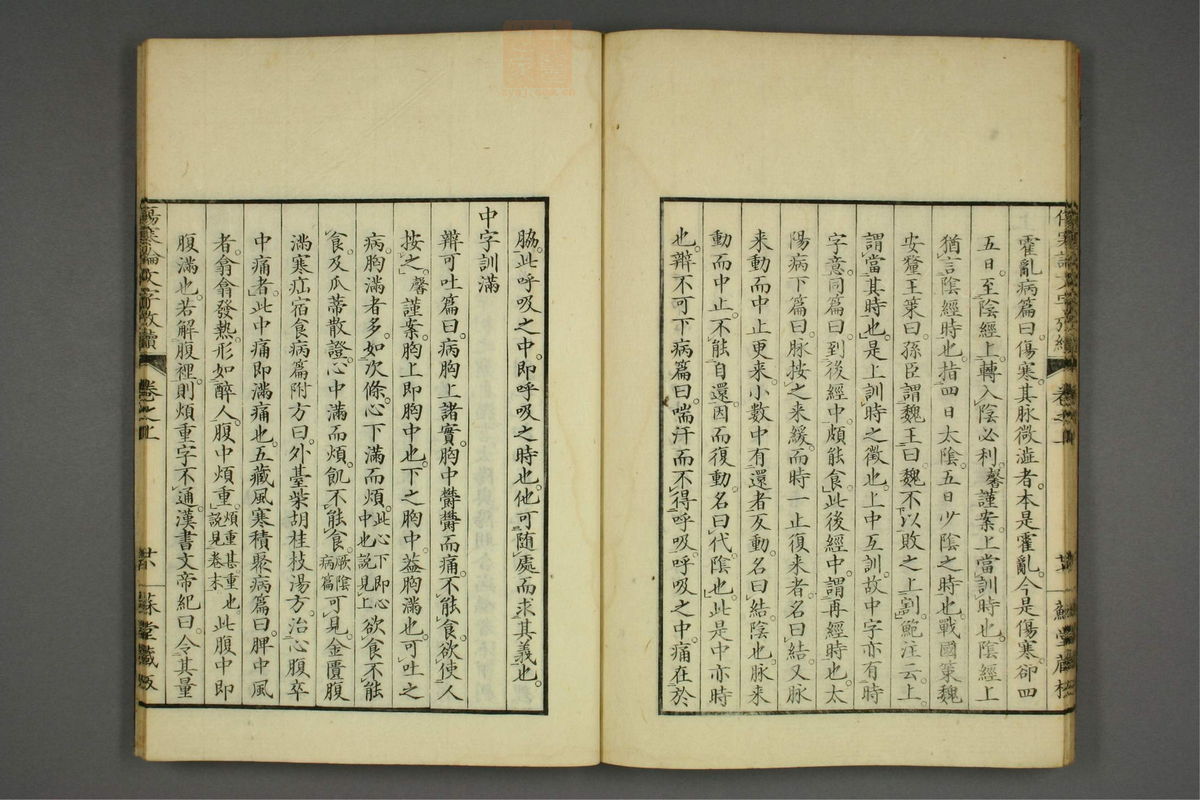 霍亂病篇曰。傷寒其脉微澁者。本是霍亂。今是傷寒。卻四
五日。至陰經上。轉入陰必利。馨謹案。上當訓時也。陰經上
猶言陰經時也。指四日太陰。五日少陰之時也。戰國策魏
安釐王策曰。孫臣謂魏王曰。魏不以敗之上割。鮑注云。上
謂當其時也。是上訓時之徵也。上中互訓。故中字亦有時
字意。同篇曰。到後經中。頗能食。此後經中。謂再經時也。太
陽病下篇曰。脉按之来緩。而時一止復来者。名曰結。又脉
来動而中止。更来。小數中有還者反動。名曰結陰也。脉来
動而中止。不能自還。因而復動。名曰代。陰也。此是中亦時
也。辨不可下病篇曰。喘汗而不得呼吸。呼吸之中。痛在於
脇。此呼吸之中。即呼吸之時也。他可随處而求其義也。
中字訓滿
辨可吐篇曰。病胸上諸實。胸中鬱鬱而痛。不能食。欲使人
按之。馨謹案。胸上即胸中也。下之胸中。蓋胸滿也。可吐之
病。胸滿者多。如次條。心下滿而煩。此心下即心中也說見上欲食不能
食。及瓜蒂散證。心中滿而煩。飢不能食。厥陰病篇可見。金匱腹
滿寒疝宿食病篇附方曰。外臺柴胡桂枝湯方。治心腹卒
中痛者。此中痛即滿痛也。五藏風寒積聚病篇曰。脾中風
者。翕翕發熱。形如醉人。腹中煩重。煩重甚重也。說見卷末此腹中即
腹滿也。若解腹裡。則煩重字不通。漢書文帝紀曰。令其量
傷寒論文字攷續
卷之上